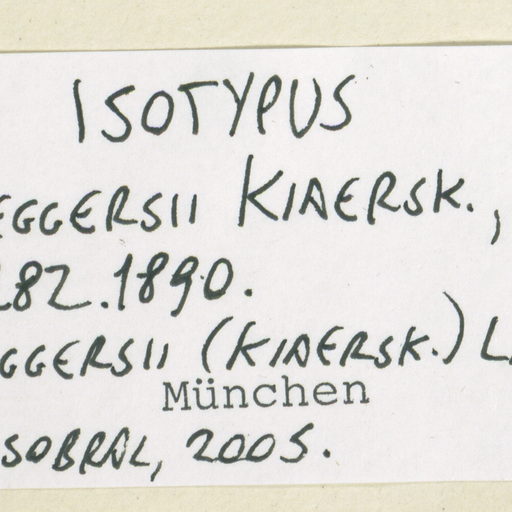 ISOTYPUS
EGGERSII KIAERSK.,
282.1890.
GGERSII (KIAERSK.) L
München
SOBRAL, 2005.